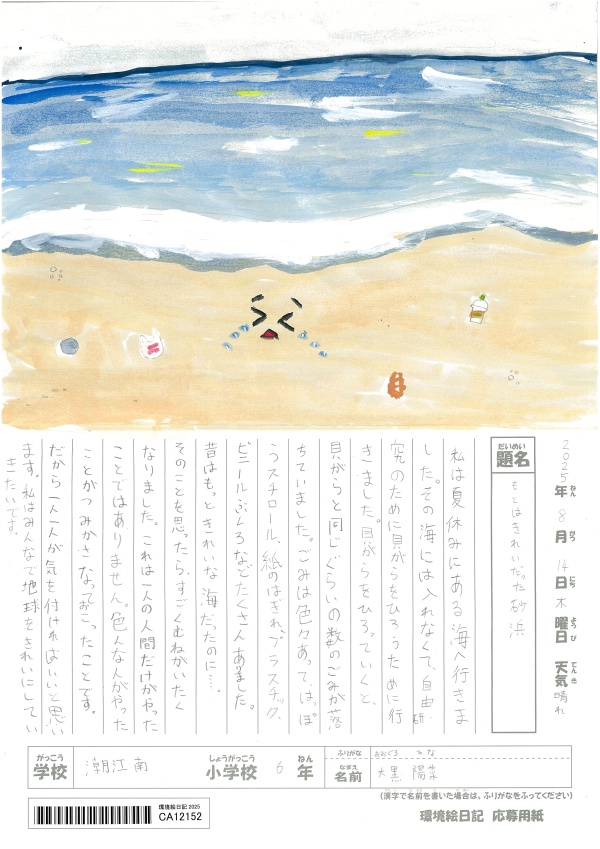 2025年 8月 14日 木曜日 天気 晴れ
ねん がつ にち ようび てんき
だいめい
題名
もとはきれいだった砂浜
私は夏休みにある海へ行きま
した。その海には入れなくて、自由研
究のために貝がらをひろうために行
きました。貝がらをひろっていくと、
貝がらと同じぐらいの数のごみが落
ちていました。ごみは色々あって、はっぽ
うスチロール、紙のはぎれ、プラスチック、
ビニールぶくろなどたくさんありました。
昔はもっときれいな海だったのに…。
そのことを思ったら、すごくむねがいたく
なりました。これは一人の人間だけがやった
ことではありません。色んな人がやった
ことがつみかさなっておこったことです。
だから一人一人が気を付ければいいと思い
ます。私はみんなで地球をきれいにしてい
きたいです。
がっこう
学校
潮江南
しょうがっこう
小学校
6
ねん
年
ふりがな
おおぐろ
なまえ
名前
大黒 陽菜
(漢字で名前を書いた場合は、ふりがなをふってください)
環境絵日記 2025
CA12152
環境絵日記 応募用紙